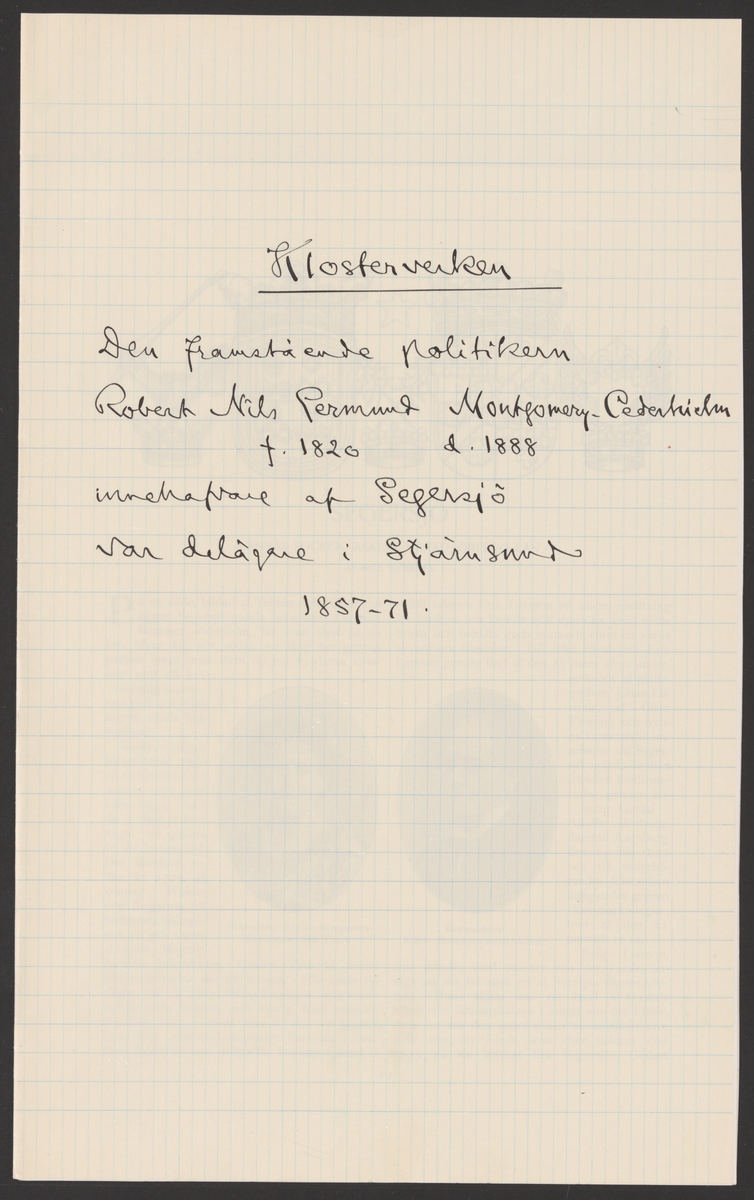 Klosterverken
Den framstående politikern
Robert Nils Germund Montgomery-Cederhielm
f. 1820 d. 1888
innehafvare af Segersjö
var delägare i Stjärnsund
1857-71.